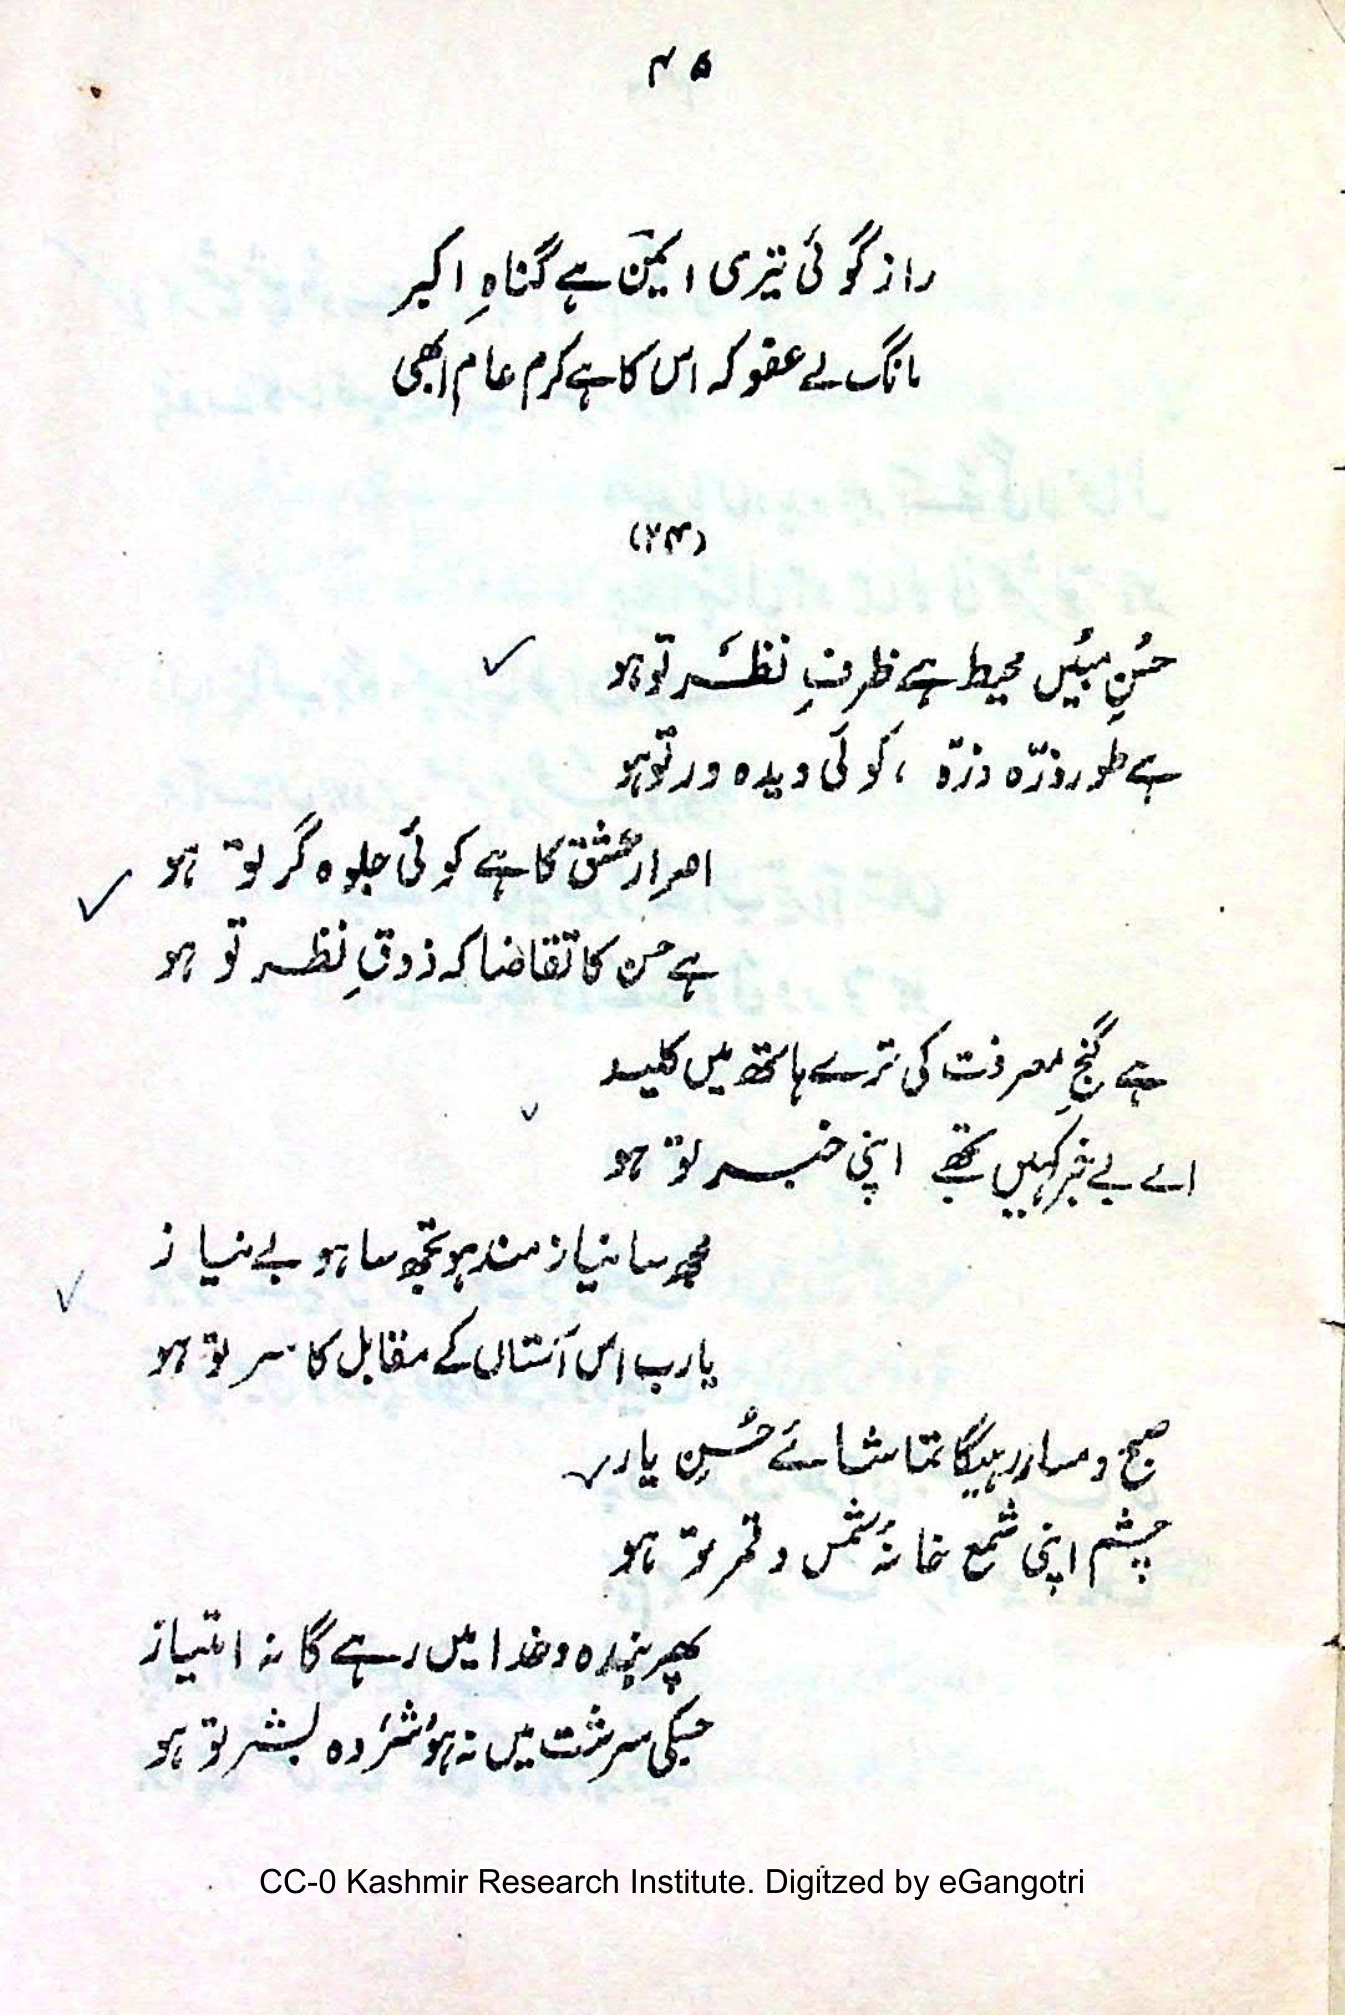 ۴۵
راز گوئی تیری ایمنؔ ہے گناہِ اکبر
مانگ لے عفو کہ اس کا ہے کرم عام ابھی
(۲۴)
حُسنِ مبیُں محیط ہے ظرفِ نظَر تو ہو
ہے طور ذرّہ ذرّہ ، کوئی دیدہ ور تو ہو
اصرار عشق کا ہے کوئی جلوہ گر تو ہو
ہے حسن کا تقاضا کہ ذوقِ نظر تو ہو
ہے گنجِ معرفت کی ترے ہاتھ میں کلید
اے بے خبر کہیں تجھے اپنی خبر تو ہو
مجھ سا نیاز مند ہو تجھ سا ہو بے نیاز
یارب اس آستاں کے مقابل کا سر تو ہو
صبح و مسا رہیگا تماشائے حُسنِ یار
چشم اپنی شمع خانۂ شمس و قمر تو ہو
پھر بندہ و خدا میں رہے گا نہ امتیاز
جسکی سرشت میں نہ ہو شَر وہ بشر تو ہو
CC-0 Kashmir Research Institute. Digitzed by eGangotri